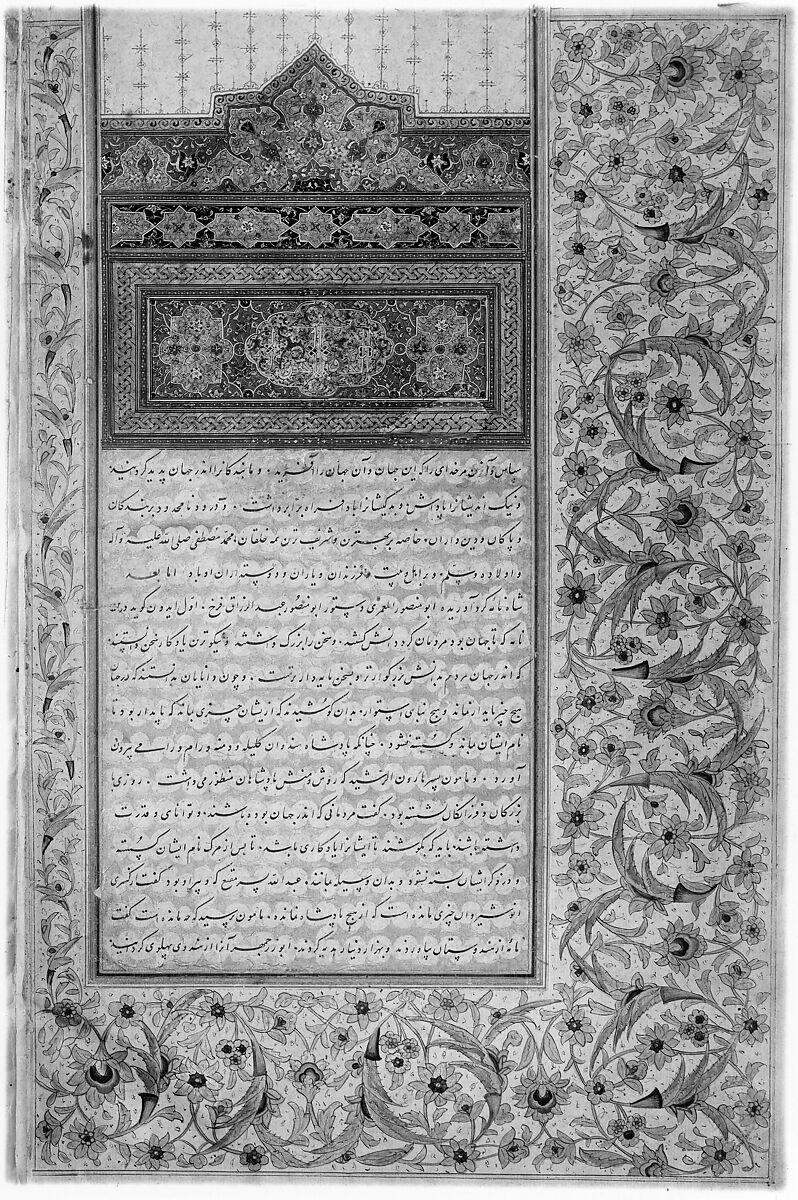 سپاس و آفرین مر خدای را که این جهان و آن جهان را آفرید و ما بندگانرا اندر جهان پدید کرد
و نیک اندیشانرا پاداش و بد کیشانرا بادافراه برابر داشت و درود نامحدود بر بندگان
و پاکان و دین داران خاصه بر بهترین و شریف ترین همه خلقان محمد مصطفی صلی الله علیه و آله
و اولاده وسلم و بر اهل بیت و فرزندان و یاران و دوستداران او باد اما بعد
شاه نامه گرد آوریده ابو منصور المعمری دستور ابو منصور عبد الرزاق فرخ اول ایدون گوید درین
نامه که تا جهان بود مردمان گرد دانش گشتند و سخن را بزرگ داشتند و نیکوترین یادگار سخن دانستند
که اندر جهان مردم بدانش بزرگوارتر و سخن پایدارتر است و چون دانایان بدانستند که در جهان
هیچ چیز پایدار نماند و هیچ بنای استوار بدان کوشیدند که ازیشان چیزی بماند که پایدار بود تا
نام ایشان بماند و گسسته نشود چنانکه پادشاه هندوان کلیله و دمنه و رام و رامی بیرون
آورد و مامون پسر هارون الرشید که روش و منش پادشاهان منظور می داشت روزی با
بزرکان و فرزانگان نشسته بود گفت مردمانی که اندر جهان بوده باشند و توانای و قدرت
داشته باشند باید که بکوشند تا ایشانرا یادگاری باشد تا پس از مرگ نام ایشان گسسته
و در ذکر ایشان بسته نشود و بدان وسیله مانند عبد الله پسر مقفع که دبیر او بود گفت از کسری
انوشیروان چیزی مانده است که از هیچ پادشاه نمانده مامون پرسید که چه مانده است گفت
نامه از هندوستان بیاوردند و بهزار دینار بدیه کردند ابوزرجمهر آنرا از هندی پهلوی